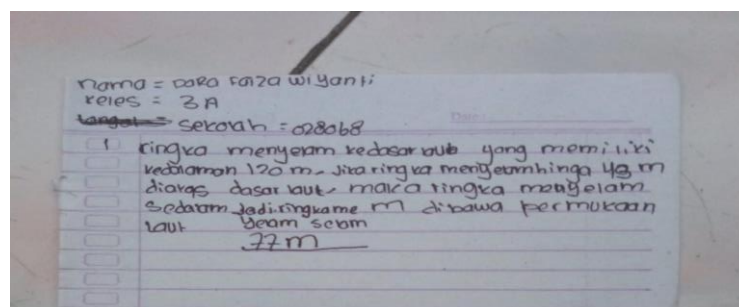 nama = DaRa Faiza wiyanti
keles = 3A
sekolah = 028068
1 ringka menyelam kedasar laut yang memiliki
kedalaman 120 m. Jika ringka menyelam hinga 43 m
diatas dasar laut, maka ringka menyelam
sedalam Jadi.ringkame m dibawa permukaan
laut yelam selam
77 m